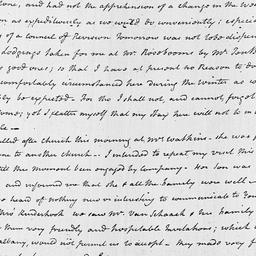 tone, and had not the apprehension of a change in the wea
on as expeditiously as we could do conveniently; especia
of a Council of Revision tomorrow was not to be dispen
Lodgings taken for me at Mr. Roseboom's by Mr. Yonk
good ones; so that I have at present no Reason to do
comfortably circumstanced here during the winter as co
ly be expected. For tho I shall not, and cannot, forget
omes; yet I flatter myself that my stay here will not be in
le.—
alled after church this morning at Mrs Watkins. she was g
one to another church— I intended to repeat my visit this
till this moment been engaged by Company. Her son was
and informed me that she & all the Family were well—
heard of nothing new or interesting to communicate to You
this Kinderhook we saw Mr. Van Schaack & his Family
them very friendly and hospitable Invitations; which
albany, would not permit us to accept. They made very f